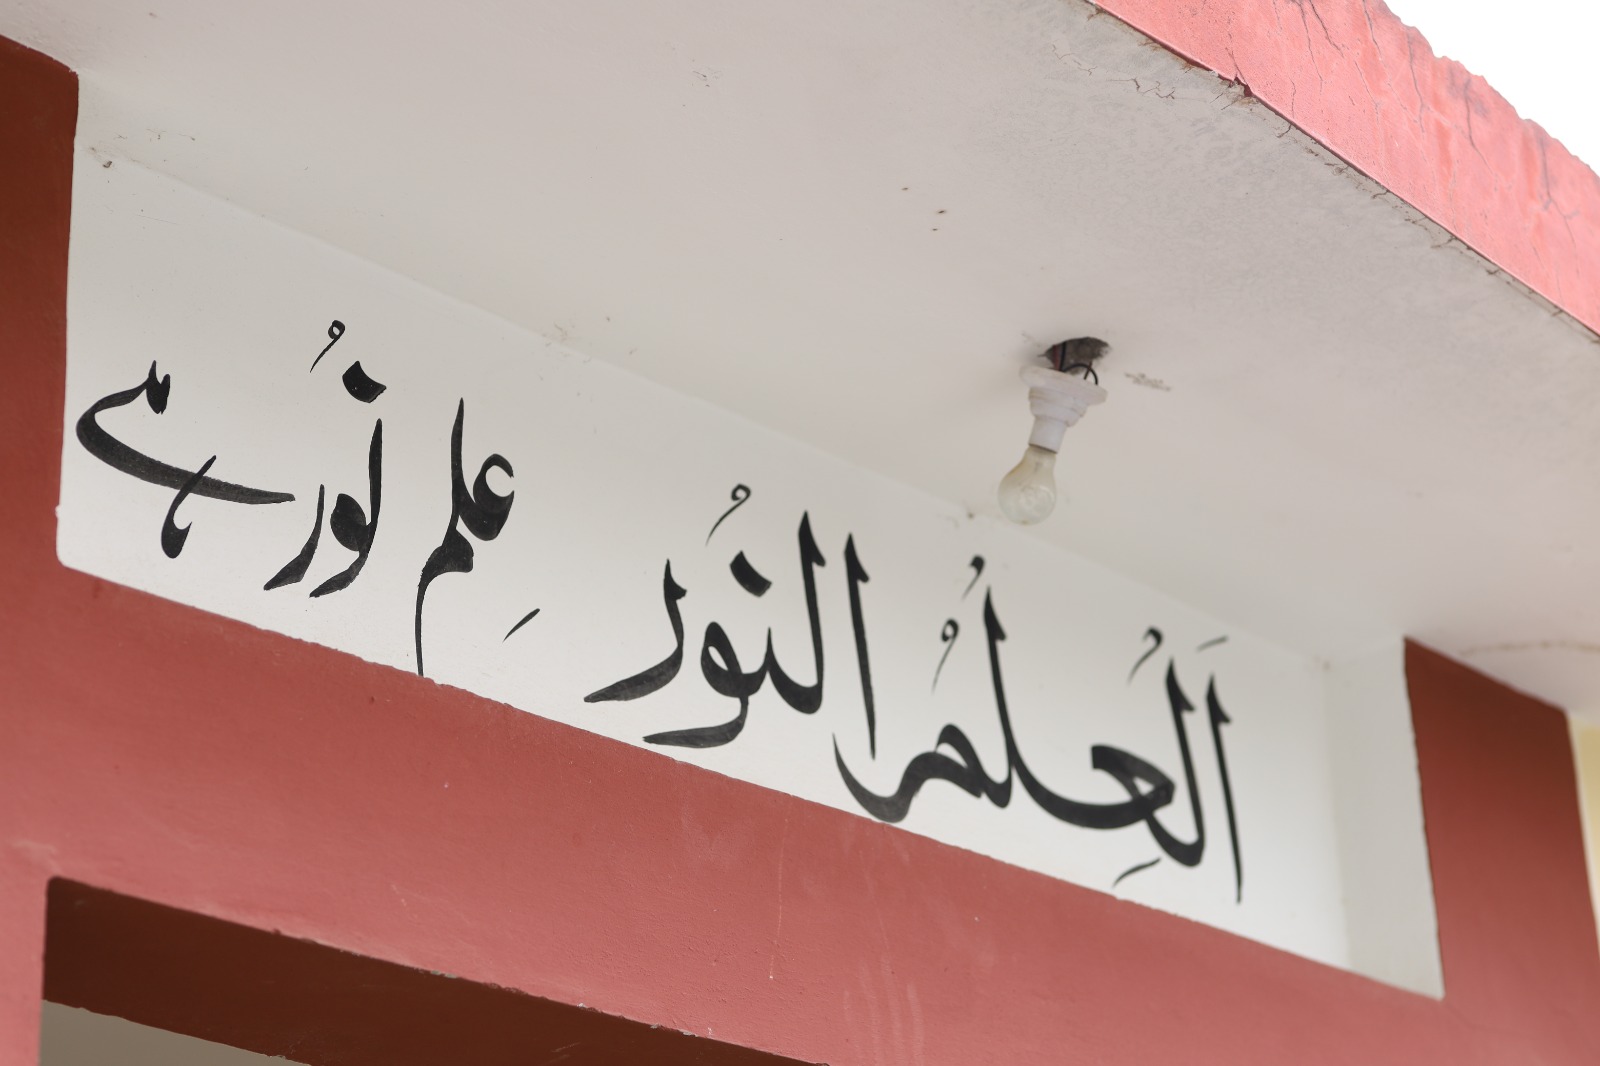 اَلْعِلْمُ النُوُر عِلم نُورہے